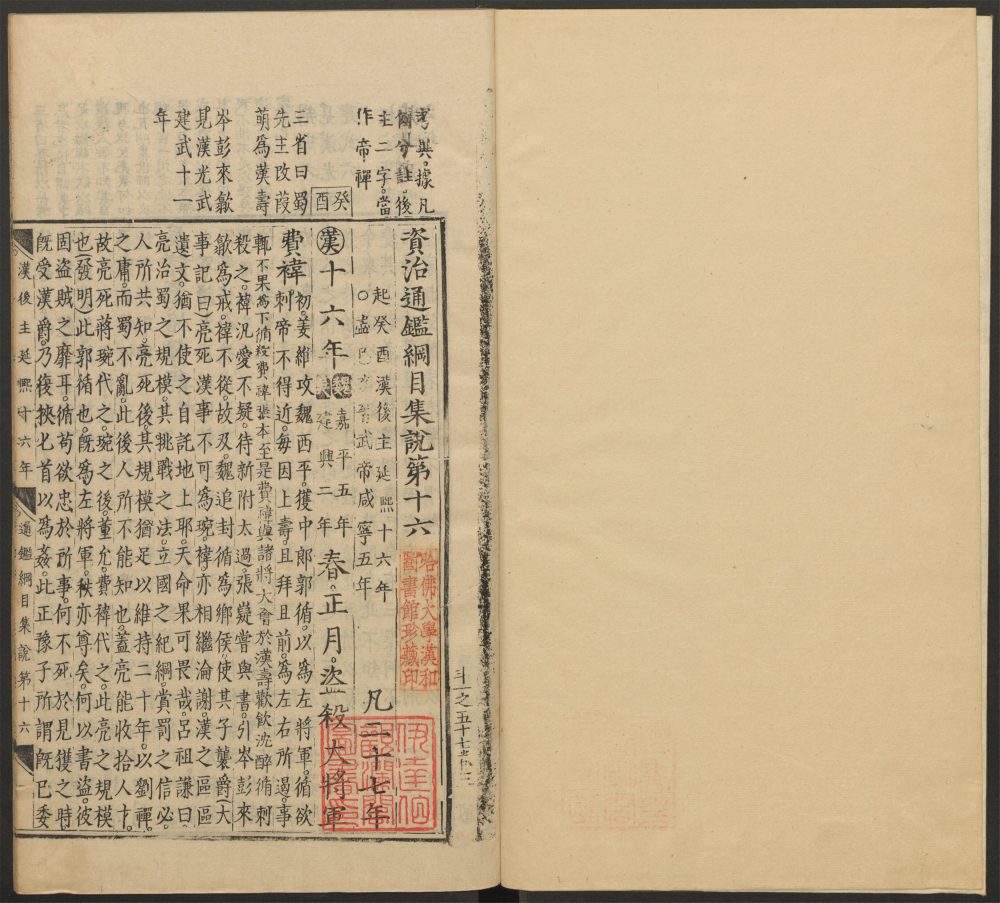 資治通鑑綱目集說第十六
起癸酉漢後主延熙十六年
○盡武帝咸寧五年
凡二十七年
癸酉
漢十六年
魏嘉平五年
建興二年
春正月盜殺大將軍
費禕
初姜維攻魏西平獲中郎郭循以為左將軍循欲
刺帝不得近每因上壽且拜且前為左右所遏事
輒不果為下循殺費禕張本至是費禕與諸將大會於漢壽歡飲沈醉循刺
殺之禕汎愛不疑待新附太過張嶷嘗與書引岑彭來
歙為戒禕不從故及魏追封循為鄉侯使其子襲爵(大
事記曰)亮死漢事不可為琬禕亦相繼淪謝漢之區區
遺文猶不使之自託地上耶天命果可畏哉呂祖謙曰
亮治蜀之規模其挑戰之法立國之紀綱賞罰之信必
人所共知亮死後其規模猶足以維持二十年以劉禪
之庸而蜀不亂此後人所不能知也蓋亮能收拾人才
故亮死蔣琬代之琬之後董允費禕代之此亮之規模
也(發明)此郭循也既為左將軍秩亦尊矣何以書盜彼
固盜賊之靡耳循苟欲忠於所事何不死於見獲之時
既受漢爵乃復挾匕首以為姦此正豫子所謂既已委
考異據凡
例分註後
主二字當
作帝禪
三省曰蜀
先主改葭
萌為漢壽
岑彭來歙
見漢光武
建武十一
年
漢後主延熙十六年
通鑑綱目集說第十六
哈佛大學漢和
圖書館珍藏印